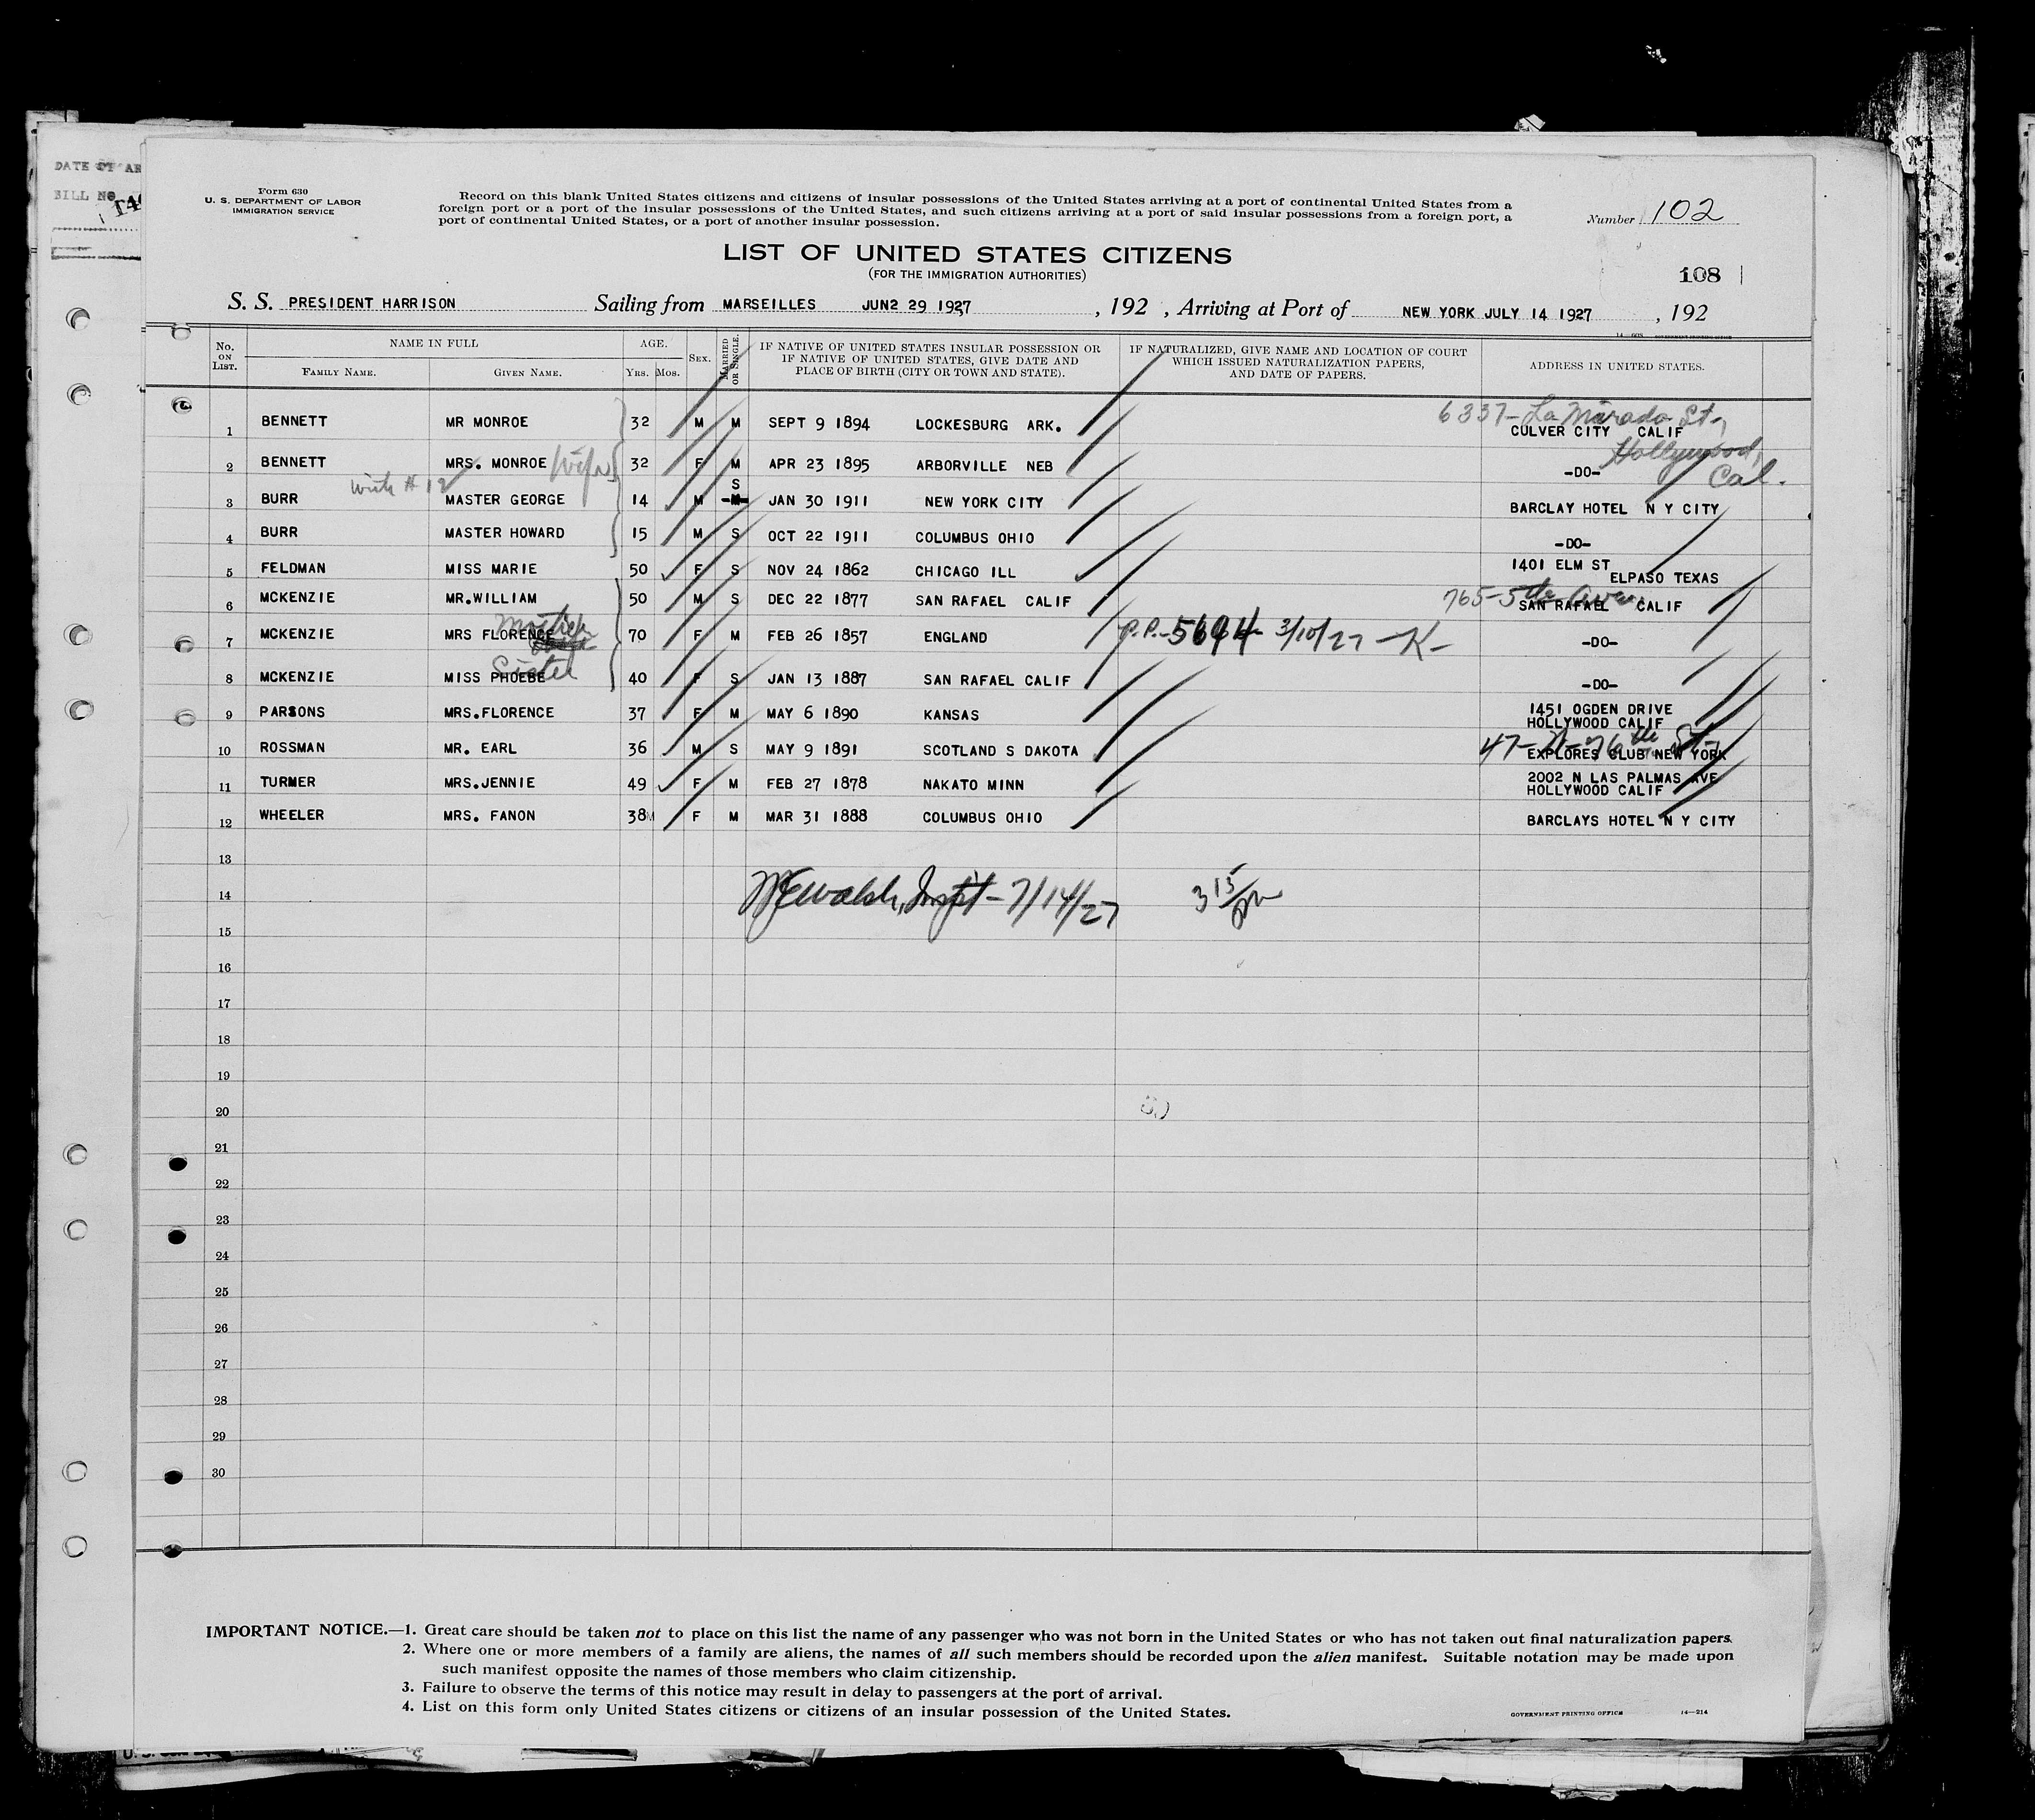 DATE OF AR
BILL No.
Form 630
U. S. DEPARTMENT OF LABOR
IMMIGRATION SERVICE
Record on this blank United States citizens and citizens of insular possessions of the United States arriving at a port of continental United States from a
foreign port or a port of the insular possessions of the United States, and such citizens arriving at a port of said insular possessions from a foreign port, a
port of continental United States, or a port of another insular possession.
Number 102
LIST OF UNITED STATES CITIZENS
(FOR THE IMMIGRATION AUTHORITIES)
108
S. S. PRESIDENT HARRISON Sailing from MARSEILLES JUN2 29 1927, 192 , Arriving at Port of NEW YORK JULY 14 1927, 192
No. ON LIST. NAME IN FULL AGE. SEX. MARRIED OR SINGLE. IF NATIVE OF UNITED STATES INSULAR POSSESSION OR IF NATIVE OF UNITED STATES, GIVE DATE AND PLACE OF BIRTH (CITY OR TOWN AND STATE). IF NATURALIZED, GIVE NAME AND LOCATION OF COURT WHICH ISSUED NATURALIZATION PAPERS, AND DATE OF PAPERS. ADDRESS IN UNITED STATES.
FAMILY NAME. GIVEN NAME. Yrs. Mos.
6337- La Mirado St.,
1 BENNETT MR MONROE 32 M M SEPT 9 1894 LOCKESBURG ARK. CULVER CITY CALIF
Hollywood, Cal.
2 BENNETT MRS. MONROE Wife 32 F M APR 23 1895 ARBORVILLE NEB -DO-
with # 12
S
3 BURR MASTER GEORGE 14 M -M- JAN 30 1911 NEW YORK CITY BARCLAY HOTEL N Y CITY
4 BURR MASTER HOWARD 15 M S OCT 22 1911 COLUMBUS OHIO -DO-
5 FELDMAN MISS MARIE 50 F S NOV 24 1862 CHICAGO ILL 1401 ELM ST
ELPASO TEXAS
765-5th Ave.
6 MCKENZIE MR.WILLIAM 50 M S DEC 22 1877 SAN RAFAEL CALIF SAN RAFAEL CALIF
Mother
7 MCKENZIE MRS FLORENCE 70 F M FEB 26 1857 ENGLAND P.P.-5694- 3/10/27 -K- -DO-
Sister
8 MCKENZIE MISS PHOEBE 40 F S JAN 13 1887 SAN RAFAEL CALIF -DO-
9 PARSONS MRS.FLORENCE 37 F M MAY 6 1890 KANSAS 1451 OGDEN DRIVE
HOLLYWOOD CALIF
47-W-76th St.
10 ROSSMAN MR. EARL 36 M S MAY 9 1891 SCOTLAND S DAKOTA EXPLORES CLUB NEW YORK
11 TURMER MRS.JENNIE 49 F M FEB 27 1878 NAKATO MINN 2002 N LAS PALMAS AVE
HOLLYWOOD CALIF
12 WHEELER MRS. FANON 38 F M MAR 31 1888 COLUMBUS OHIO BARCLAYS HOTEL N Y CITY
13
14 Walsh, Inspt- 7/14/27 3 15/pm
15
16
17
18
19
20
21
22
23
24
25
26
27
28
29
30
IMPORTANT NOTICE.—1. Great care should be taken not to place on this list the name of any passenger who was not born in the United States or who has not taken out final naturalization papers.
2. Where one or more members of a family are aliens, the names of all such members should be recorded upon the alien manifest. Suitable notation may be made upon
such manifest opposite the names of those members who claim citizenship.
3. Failure to observe the terms of this notice may result in delay to passengers at the port of arrival.
4. List on this form only United States citizens or citizens of an insular possession of the United States.
GOVERNMENT PRINTING OFFICE 14—214